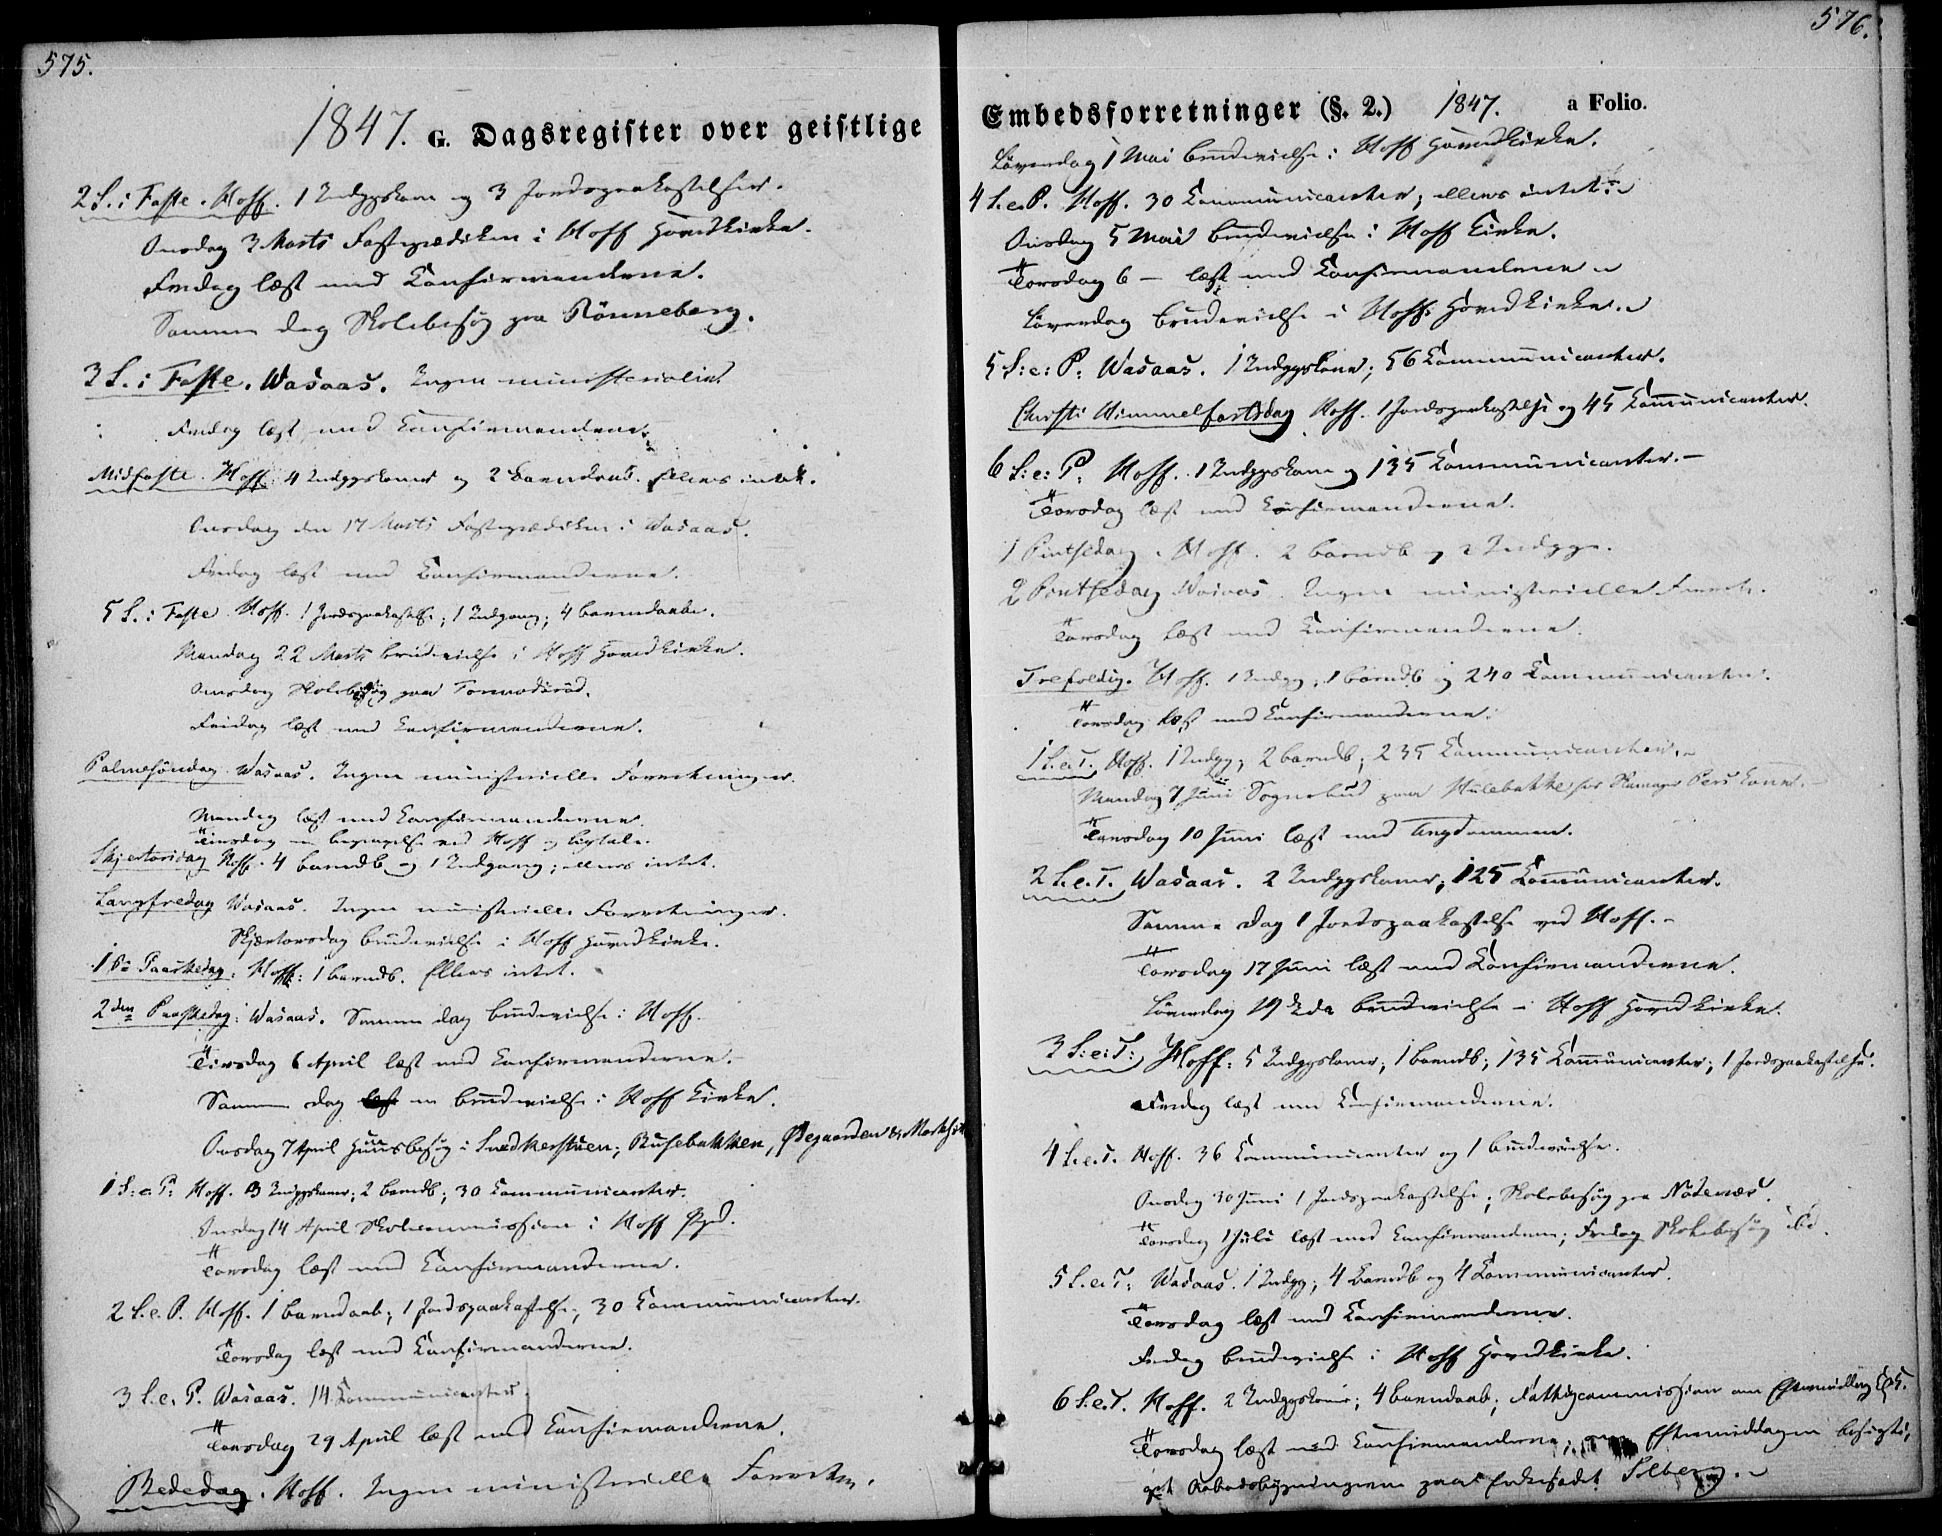 575.
1847. G. Dagsregister over geistlige
2 S. i Faste. Hoff. 1 Indggskone og 3 Jordspaakastelser.
Onsdag 3 Marts Fasteprædiken i Hoff Hovedkirke.
Fredag læst med Confirmanderne.
Samme dag Skolebesøg paa Rönneberg.
3 S. i Faste. Wasaas. Ingen ministerialia.
Fredag læst med Confirmanderne.
Midfaste. Hoff. 4 Indggskoner og 2 Barnedaab. Ellers intet.
Onsdag den 17 Marts Fasteprædiken i Wasaas.
Fredag læst med Confirmanderne.
5 S. i Faste Hoff. 1 Jordspaakastelse; 1 Indgang; 4 barnedaabe.
Mandag 22 Marts brudevielse i Hoff Hovedkirke.
Onsdag Skolebesøg paa
Fredag læst med Confirmanderne.
Palmesöndag. Wasaas. Ingen ministerielle Forretninger.
Mandag læst med Confirmanderne.
Tirsdag en begravelse ved Hoff og ligtale.
Skjertorsdag Hoff. 4 barndb og 1 Indgang; ellers intet.
Langfredag Wasaas. Ingen ministerielle Forretninger.
Skjærtorsdag brudevielse i Hoff Hovedkirke.
1ste Paaskedag: Hoff: 1 barndb. Ellers intet.
2den Paaskedag: Wasaas. Samme dag brudevielse i Hoff.
Tirsdag 6 April læst med Confirmanderne.
Samme dag en brudevielse i Hoff Kirke.
Onsdag 7 April Huusbesøg i Snedkerstuen; Rusebakken, Øegaarden &
1 S. e. P: Hoff. 3 Indggskoner; 2 barndb; 30 Communicanter.
Onsdag 14 April Skolecommission i Hoff Pgd.
Torsdag læst med Confirmanderne.
2 S. e. P. Hoff. 1 barnedaab; 1 Jordspaakastelse; 30 Communicanter.
Torsdag læst med Confirmanderne.
3 S. e. P. Wasaas. 14 Communicanter.
Torsdag 29 April læst med Confirmanderne.
Bededag. Hoff. Ingen ministerielle Forretn.
576.
Embedsforretninger (§. 2.) 1847. a Folio.
Löverdag 1 Mai brudevielse i Hoff Hovedkirke.
4 S. e. P. Hoff. 30 Communicanter; ellers intet.
Onsdag 5 Mai brudevielse i Hoff Kirke.
Torsdag 6 – læst med Confirmanderne
Löverdag brudevielse i Hoff Hovedkirke.
5 S: e: P: Wasaas. 1 Indggskone; 56 Communicanter.
Christi Himmelfartsdag Hoff. 1 Jordspaakastelse og 45 Communicanter.
6 S: e: P: Hoff. 1 Indggskone og 135 Communicanter.
Torsdag læst med Confirmanderne.
1 Pintsedag. Hoff. 2 barndb og 2 Indgge.
2 Pintsedag Wasaas. Ingen ministerielle Forretn.
Torsdag læst med Confirmanderne.
Trefoldig. Hoff. 1 Indgg; 1 barndb og 240 Communicanter.
Torsdag læst med Confirmanderne.
1 S. e. T. Hoff. 1 Indgg; 2 barndb; 235 Communicanter.
Mandag 7 Juni Sognebud paa Hulebakke for Pers Kone.
Torsdag 10 Juni læst med Ungdommen.
2 S. e. T. Wasaas. 2 Indggskoner; 125 Communicanter.
Samme dag 1 Jordspaakastelse ved Hoff.
Torsdag 17 Juni læst med Confirmanderne.
Löverdag 19 brudevielse i Hoff Hovedkirke.
3 S: e: T: Hoff: 5 Indggskoner; 1 barndb; 135 Communicanter; 1 Jordspaakastelse.
Fredag læst med Confirmanderne.
4 S. e. T. Hoff. 36 Communicanter og 1 brudevielse.
Onsdag 30 Juni 1 Jordspaakastelse; Skolebesøg paa
Torsdag 1 Juli læst med Confirmanderne; Fredag Skolebesøg
5 S. e. T: Wasaas. 1 Indgg; 4 Barndb og 4 Communicanter.
Torsdag læst med Confirmanderne.
Fredag brudevielse i Hoff Hovedkirke.
6 S. e. T. Hoff. 2 Indggskoner; 4 barnedaab; Fattigcommission om Eftermiddag
Torsdag læst med Confirmanderne; Eftermiddagen besigti,
get paa Enkesædet Solberg.